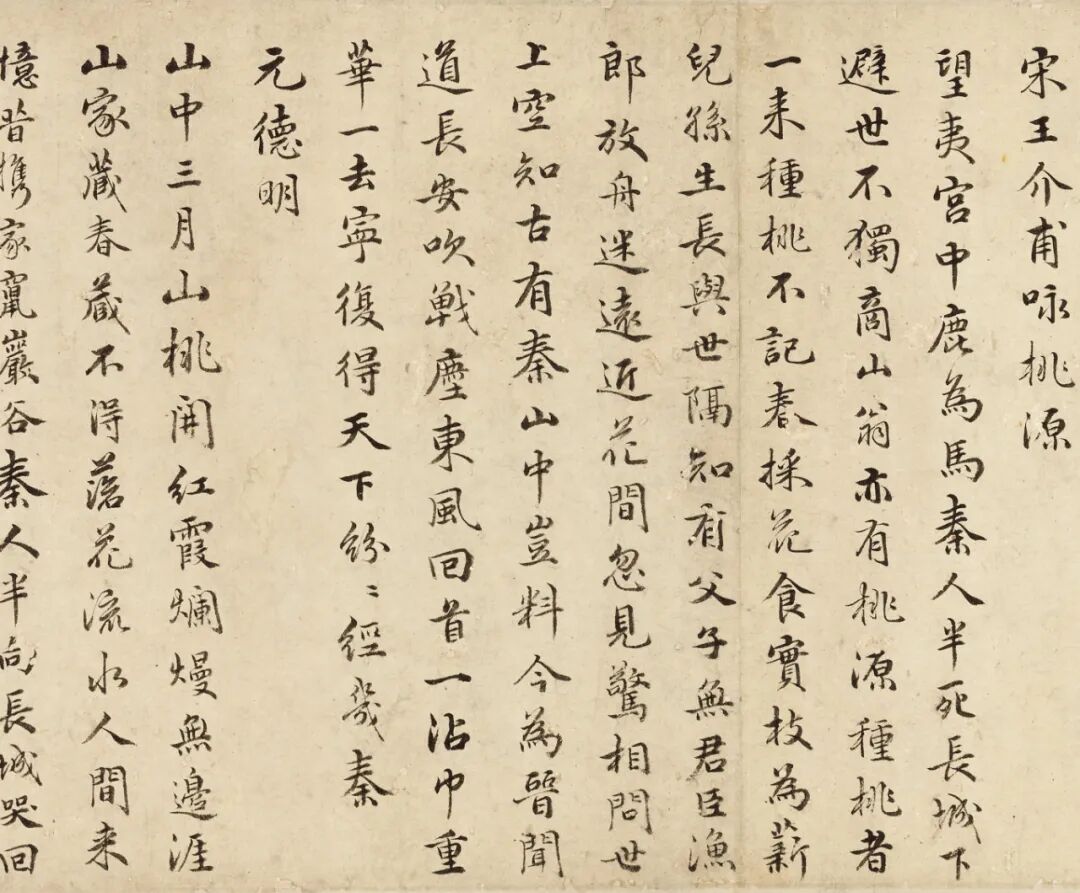 宋王介甫咏桃源
望夷宫中鹿為馬秦人半死長城下
避世不獨商山翁亦有桃源種桃者
一来種桃不記春採花食實枝為薪
兒孫生長與世隔知有父子無君臣漁
郎放舟迷遠近花間忽見驚相問世
上空知古有秦山中豈料今為晉聞
道長安吹戰塵東風回首一沾巾重
華一去寧復得天下紛〻經幾秦
元德明
山中三月山桃開紅霞爛熳無邊涯
山家藏春藏不得落花流水人間来
憶昔携家竄巖谷秦人半向長城哭回